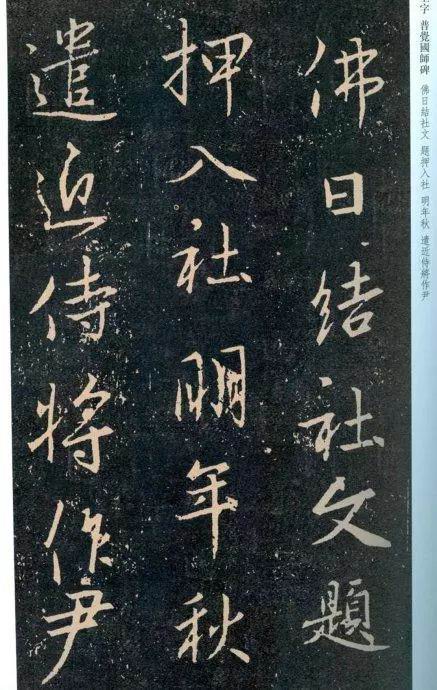 佛日結社文題
押入社明年秋
遣近侍將作尹
字 普覺國師碑 佛日結社文 題押入社 明年秋 遣近侍將作尹